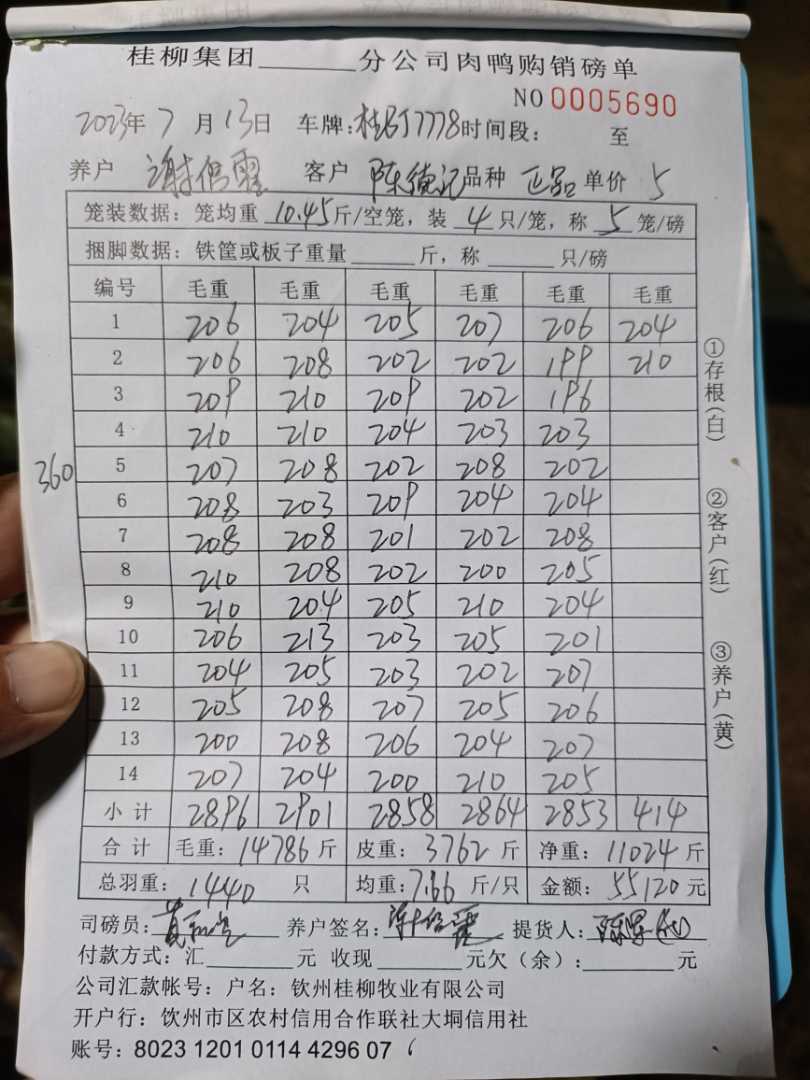 桂柳集团______分公司肉鸭购销磅单
NO 0005690
2023年 7 月 13日 车牌:桂BJ7778时间段: 至
养户 客户 陈德记 品种 正品 单价 5
笼装数据: 笼均重 10.45斤/空笼, 装 4 只/笼, 称 5 笼/磅
捆脚数据: 铁筐或板子重量______斤, 称______只/磅
编号 毛重 毛重 毛重 毛重 毛重 毛重
1 206 204 205 207 206 204
2 206 208 202 202 199 210
3 209 210 209 202 196
4 210 210 204 203 203
360 5 207 208 202 208 202
6 208 203 209 204 204
7 208 208 201 202 208
8 210 208 202 200 205
9 210 204 205 210 204
10 206 213 203 205 201
11 204 205 203 202 207
12 205 208 207 205 206
13 200 208 206 204 207
14 207 204 200 210 205
小计 2896 2901 2858 2864 2853 414
合计 毛重: 14786 斤 皮重: 3762 斤 净重: 11024 斤
总羽重: 1440 只 均重: 7.66 斤/只 金额: 55120 元
司磅员: 养户签名: 提货人:
付款方式: 汇______元 收现______元欠(余):______元
公司汇款帐号: 户名: 钦州桂柳牧业有限公司
开户行: 钦州市区农村信用合作联社大垌信用社
账号: 8023 1201 0114 4296 07
①存根(白)
②客户(红)
③养户(黄)